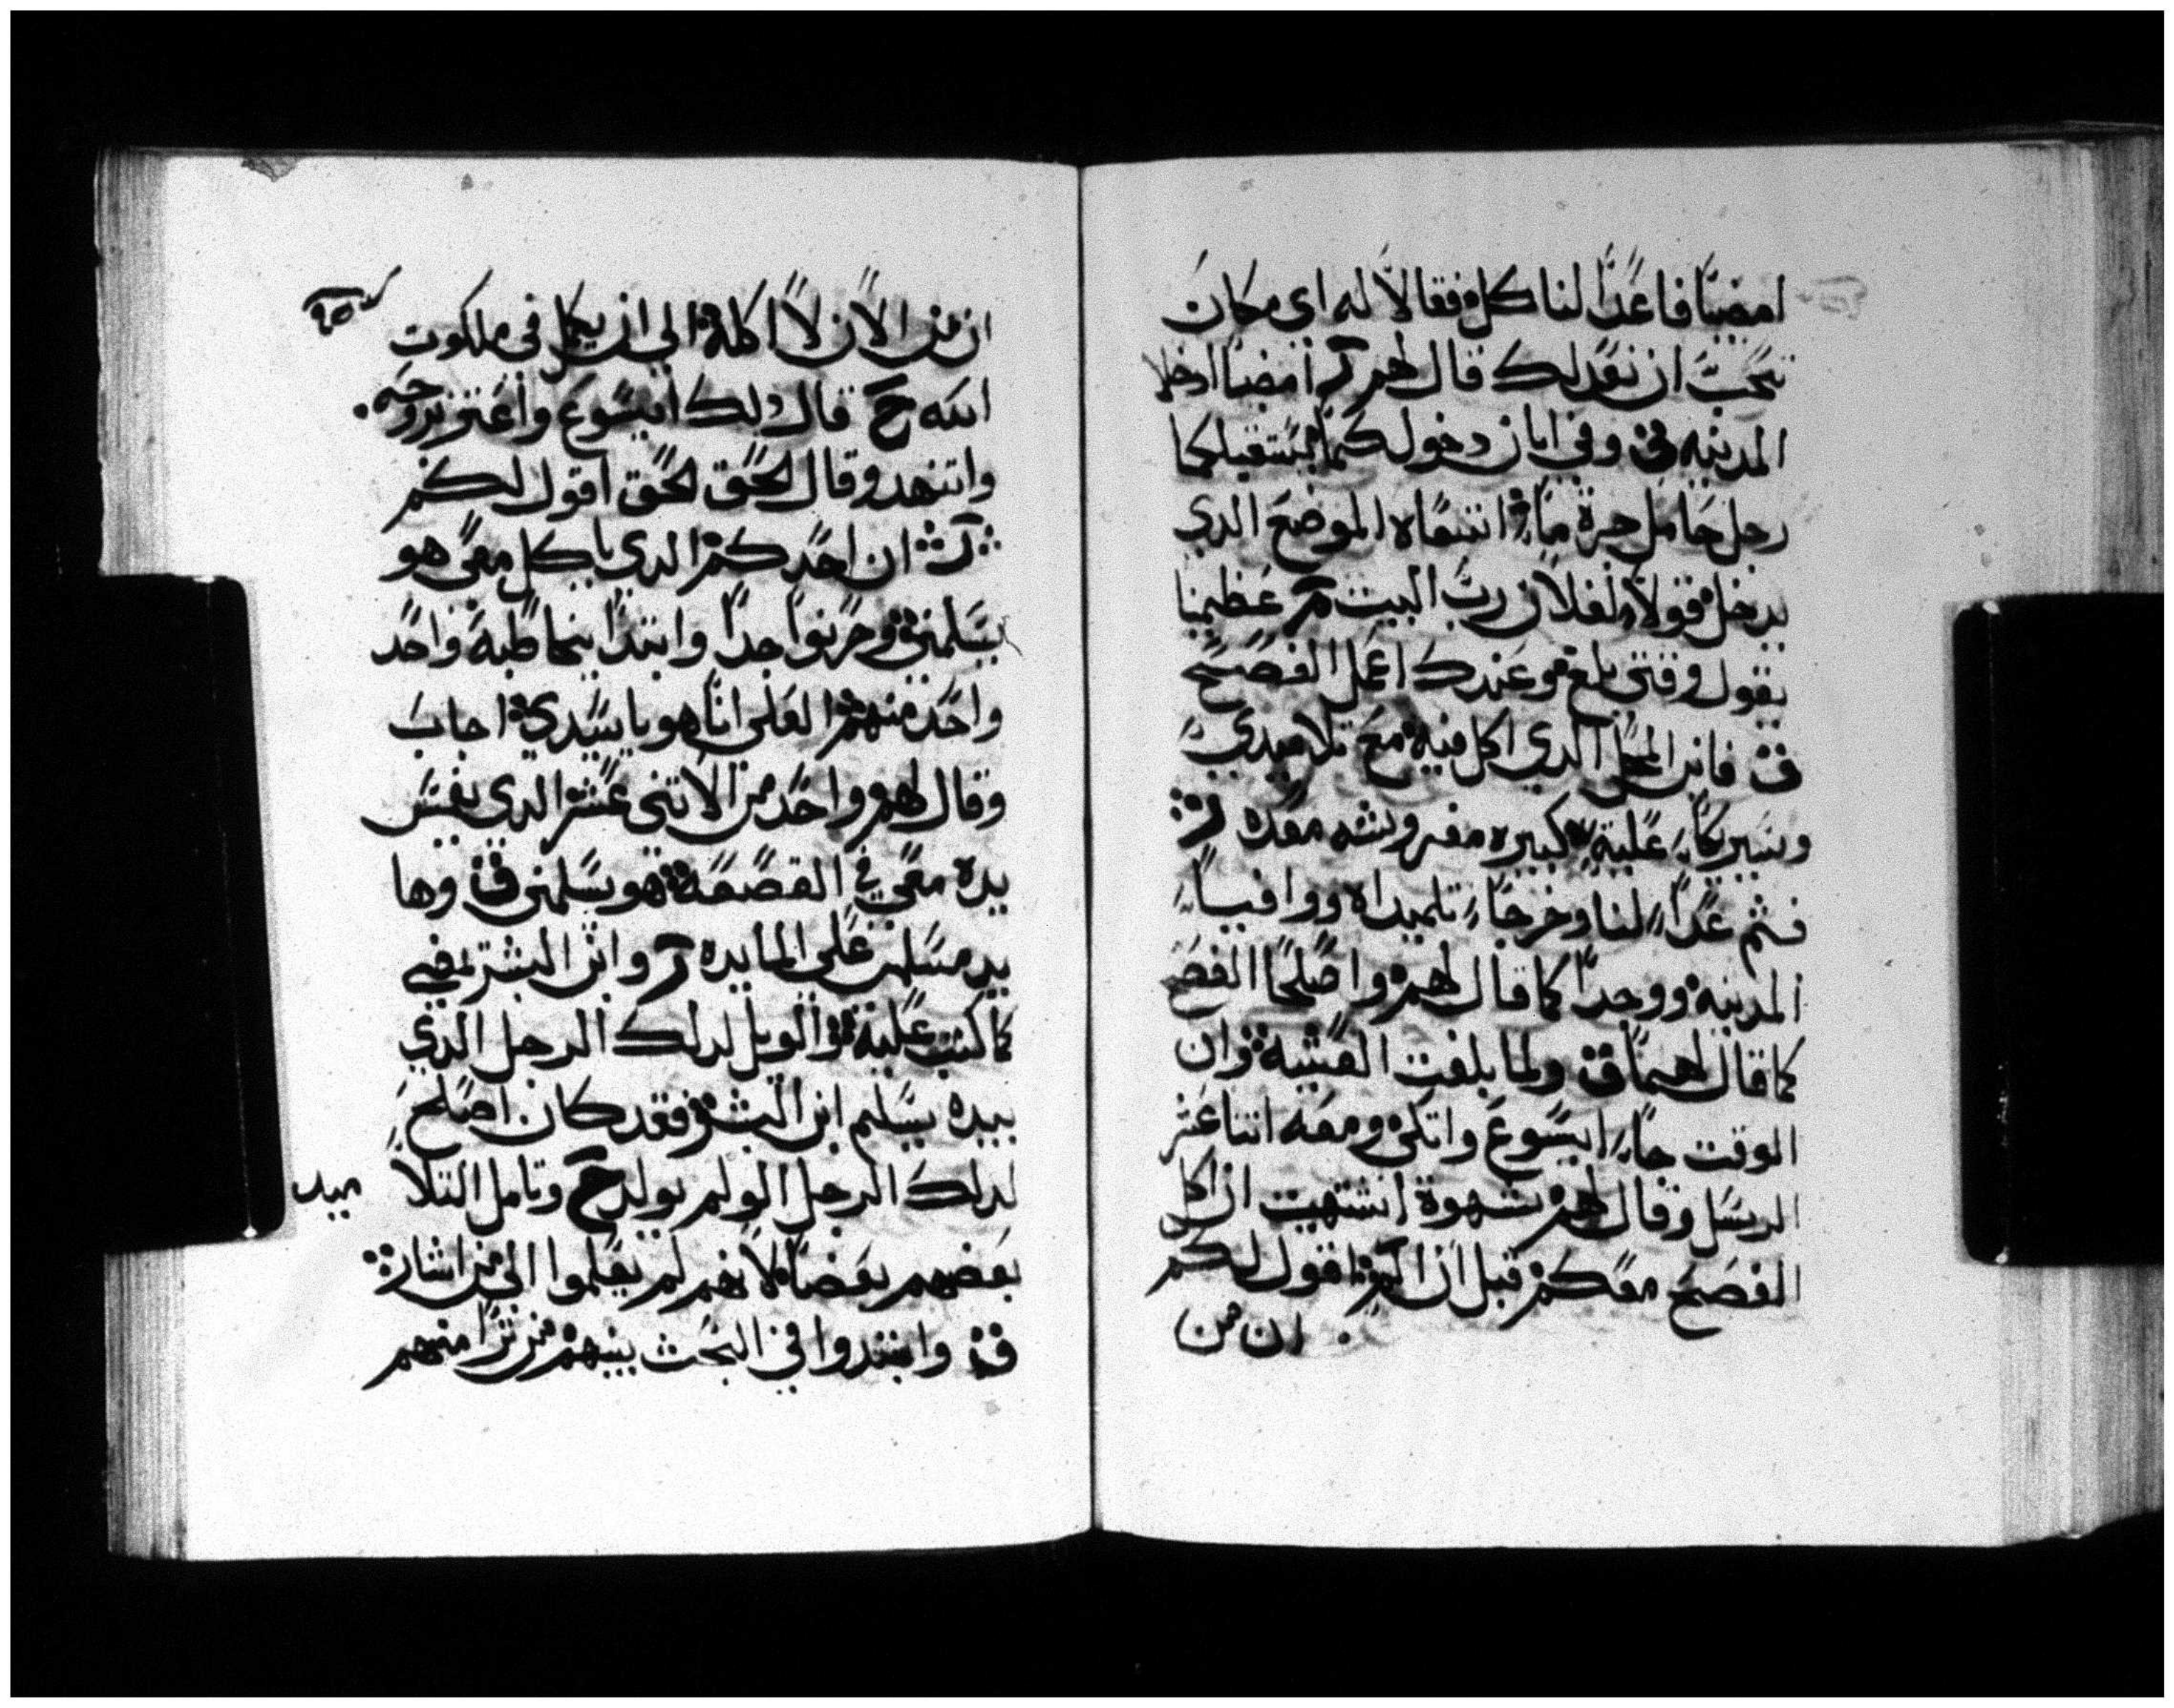 امضيا فاعدا لنا كل فقالا له اي مكان
تحب ان نعد لك قال لهم ر امضيا ادخلا
المدينه ق وفي ابان دخولكما يستقبلكما
رجل حامل جرة ماء اتبعاه الموضع الدي
يدخل قولا لفلان رب البيت م عظيمنا
يقول وقتي بلغ وعندك اعمل الفصح
ق فاين المحل الدي اكل فيه مع تلاميدي
وسيريكما علية كبيره مفروشه معده ر
فثم عدا لنا وخرجا تلميداه ووافيا
المدينة ووجدا كما قال لهم واصلحا الفصح
كما قال لهما ق ولما بلغت العشية وان
الوقت جاء ايسوع واتكى ومعه اتنا عشر
الرسل وقال لهم شهوة اشتهيت ان اكل
الفصح معكم قبل ان الم اقول لكم
ان من
ان من الان لا اكلة الي ان يكمل في ملكوت
الله ح قال دلك ايسوع واعتز بروحه
واتنهد وقال الحق الحق اقول لكم
ر ان احدكم الدي ياكل معي هو
يسلمني وحزنوا جدا وابتدا يخاطبه واحد
واحد منهم العلي انا هو يا سيدي اجاب
وقال لهم واحد من الاتني عشر الدي يغمس
يده معي في القصعة هو يسلمني ق وها
يد مسلمي علي المايده ر وابن البشر يمضي
كما كتب علية والويل لدلك الرجل الدي
بيده يسلم ابن البشر فقد كان اصلح
لدلك الرجل لو لم يولد ح وتامل التلا
ميد
بعضهم بعضا لانهم لم يعلموا الي من اشار
ق وابتدوا في البحث بينهم من ترا منهم